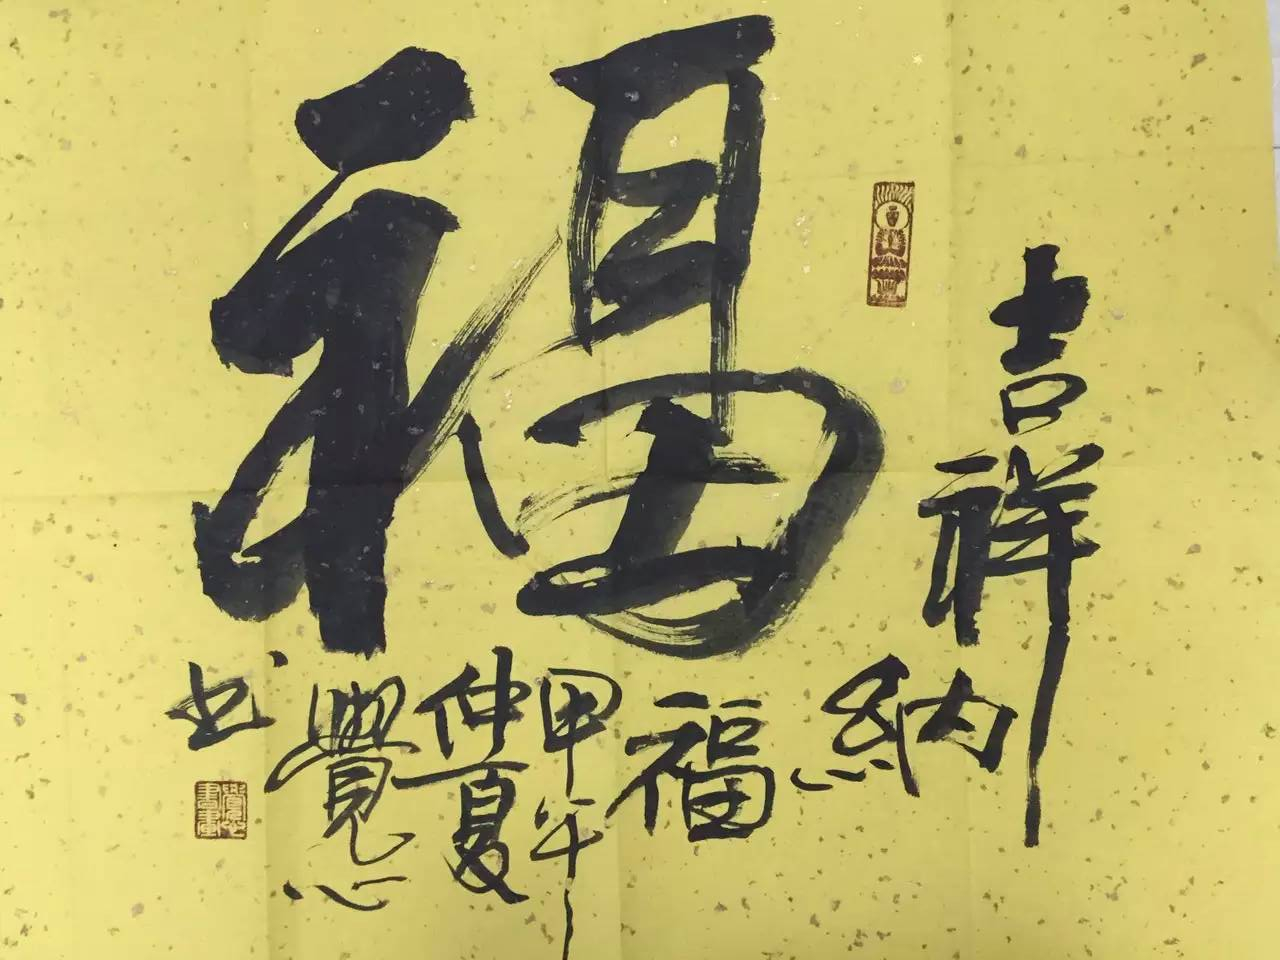 福
吉祥
納
福
甲午
仲夏
覺心
书
覺心書畫